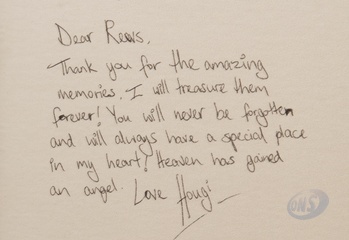 Dear Reevs,
Thank you for the amazing
memories. I will treasure them
forever! You will never be forgotten
and will always have a special place
in my heart! Heaven has gained
an angel. Love Hougi